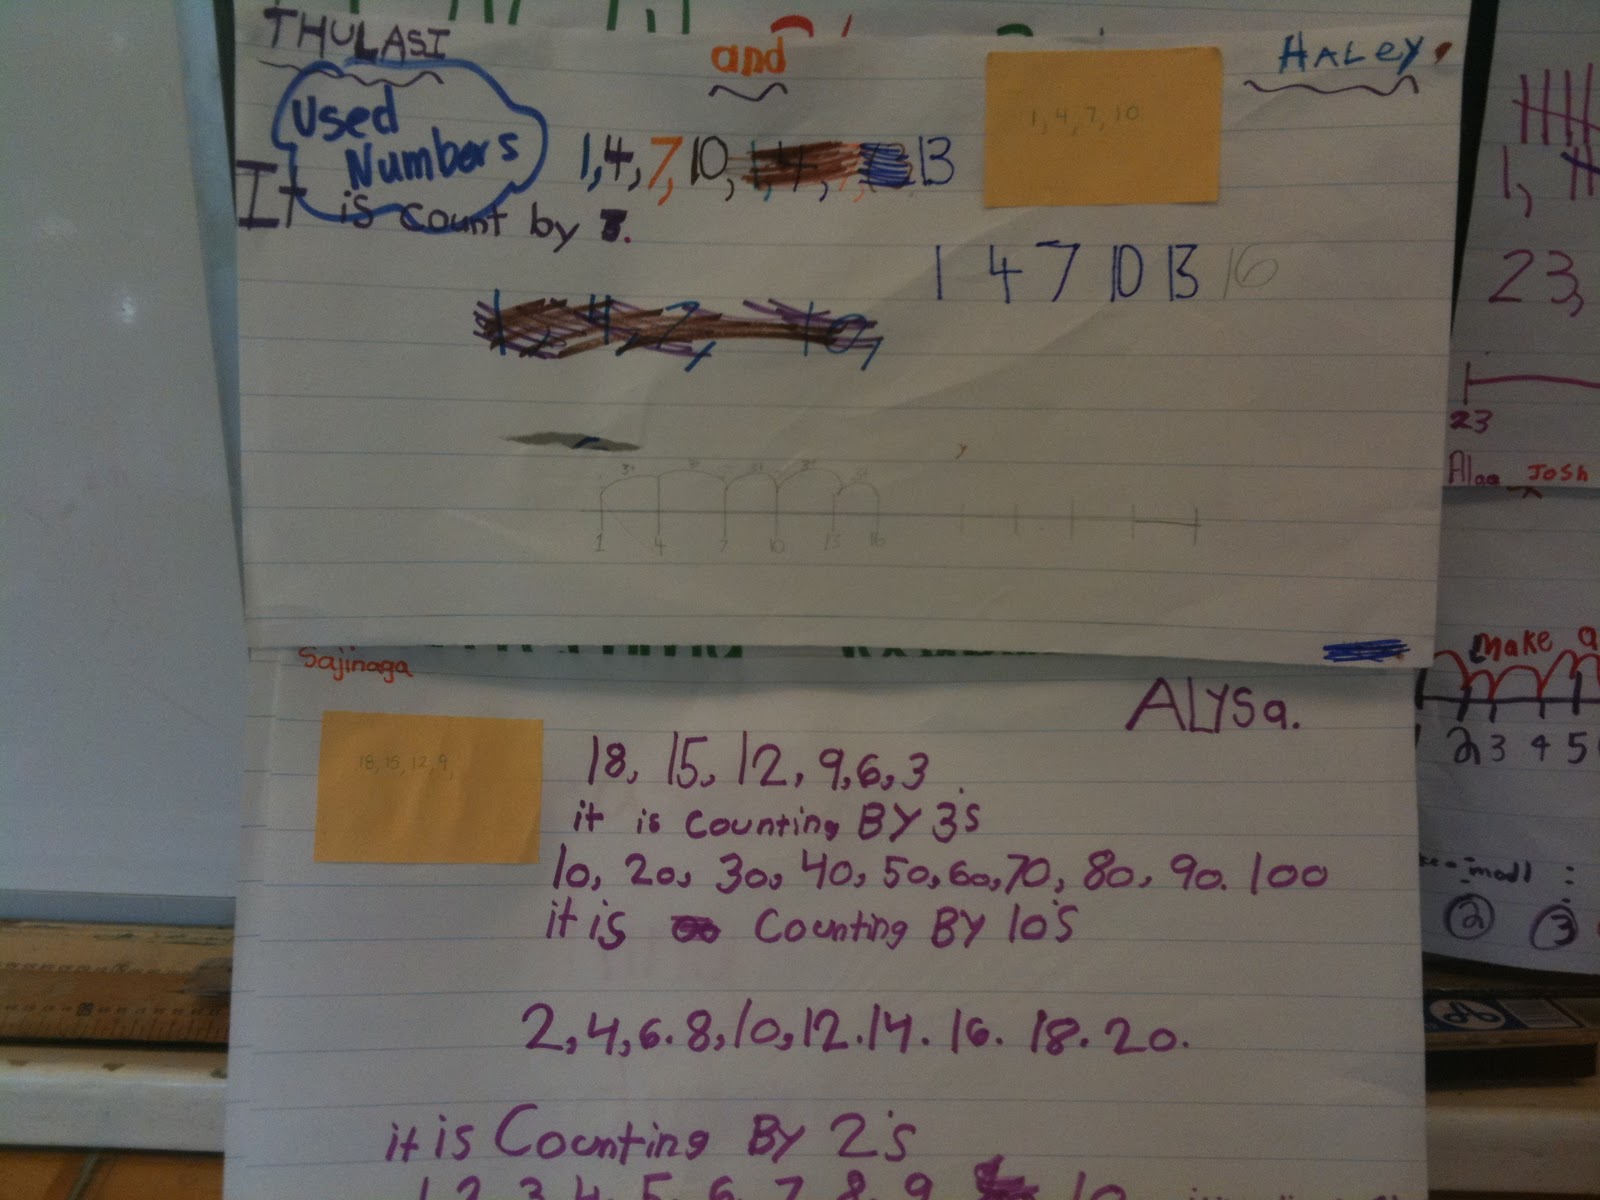 THULASI and HALEY
Used
Numbers
1,4,7,10, 13
1, 4, 7, 10
It is count by 3.
1 4 7 10 13 16
1 4 7 10 13 16
Sajinaga
ALYSa.
18, 15, 12, 9
18, 15, 12, 9,6,3
it is Counting BY 3's
10, 20, 30, 40, 50, 60, 70, 80, 90. 100
it is Counting BY 10's
2,4,6.8,10,12.14. 16. 18. 20.
it is Counting BY 2's
1 2 3 4 5 6 7 8 9 10
1,
23,
23
Josh
make a
2 3 4 5
2 3